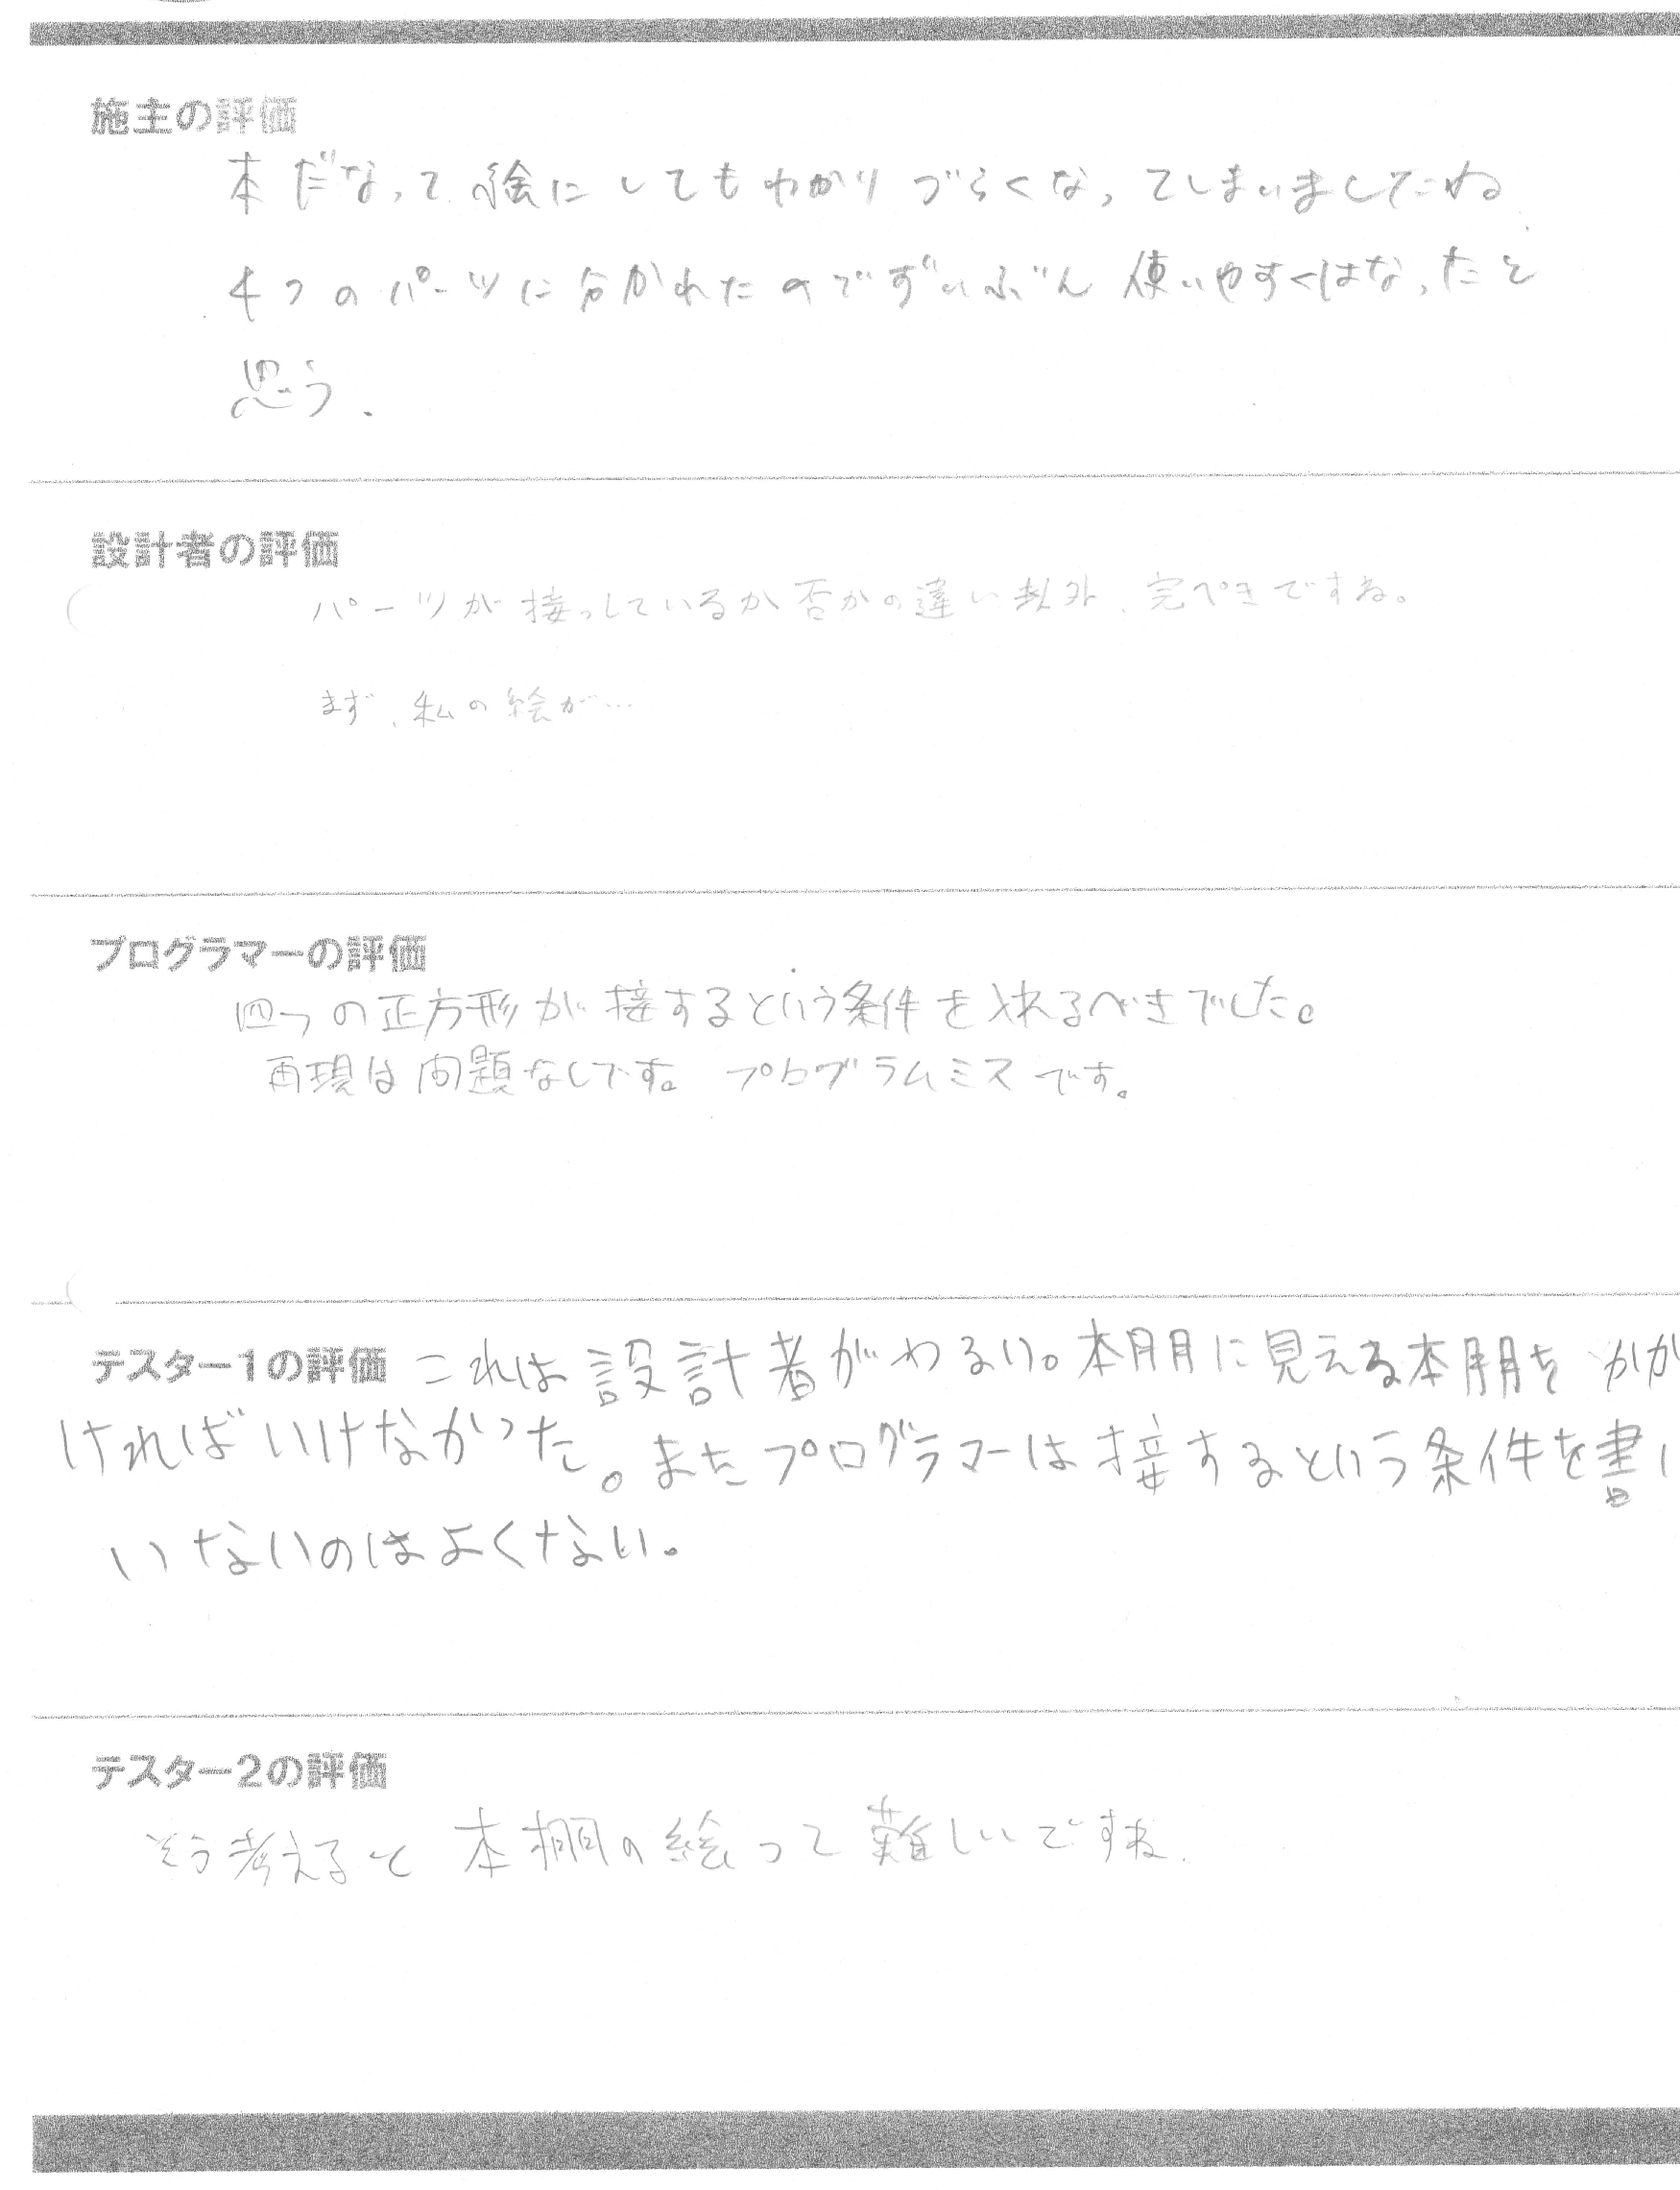 施主の評価
本だなって絵にしてもわかりづらくなってしまいましたね
4つのパーツに分かれたのでずいぶん使いやすくはなったと
思う.
設計者の評価
パーツが接っしているか否かの違い以外、完ぺきですね。
まず、私の絵が…
プログラマーの評価
四つの正方形が接するという条件を入れるべきでした。
再現は問題なしです。プログラムミスです。
テスター1の評価 これは設計者がわるい。本棚に見える本棚をかか
ければいけなかった。またプログラマーは接するという条件を書
いないのはよくない。
テスター2の評価
そう考えると本棚の絵って難しいですね.